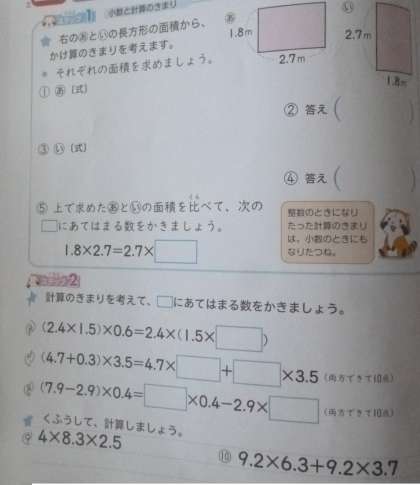 小数と計算のきまり
★ 右のあといの長方形の面積から、
かけ算のきまりを考えます。
● それぞれの面積を求めましょう。
あ
1.8m
2.7m
い
2.7m
1.8m
① あ〔式〕
② 答え( )
③ い〔式〕
④ 答え( )
⑤ 上で求めたあといの面積を比べて、次の
□にあてはまる数をかきましょう。
1.8×2.7=2.7×□
整数のときになり
たった計算のきまり
は、小数のときにも
なりたつね。
★ 計算のきまりを考えて、□にあてはまる数をかきましょう。
⑥ (2.4×1.5)×0.6=2.4×(1.5×□)
⑦ (4.7+0.3)×3.5=4.7×□+□×3.5 (両方できて10点)
⑧ (7.9−2.9)×0.4=□×0.4−2.9×□ (両方できて10点)
★ くふうして、計算しましょう。
⑨ 4×8.3×2.5
⑩ 9.2×6.3+9.2×3.7